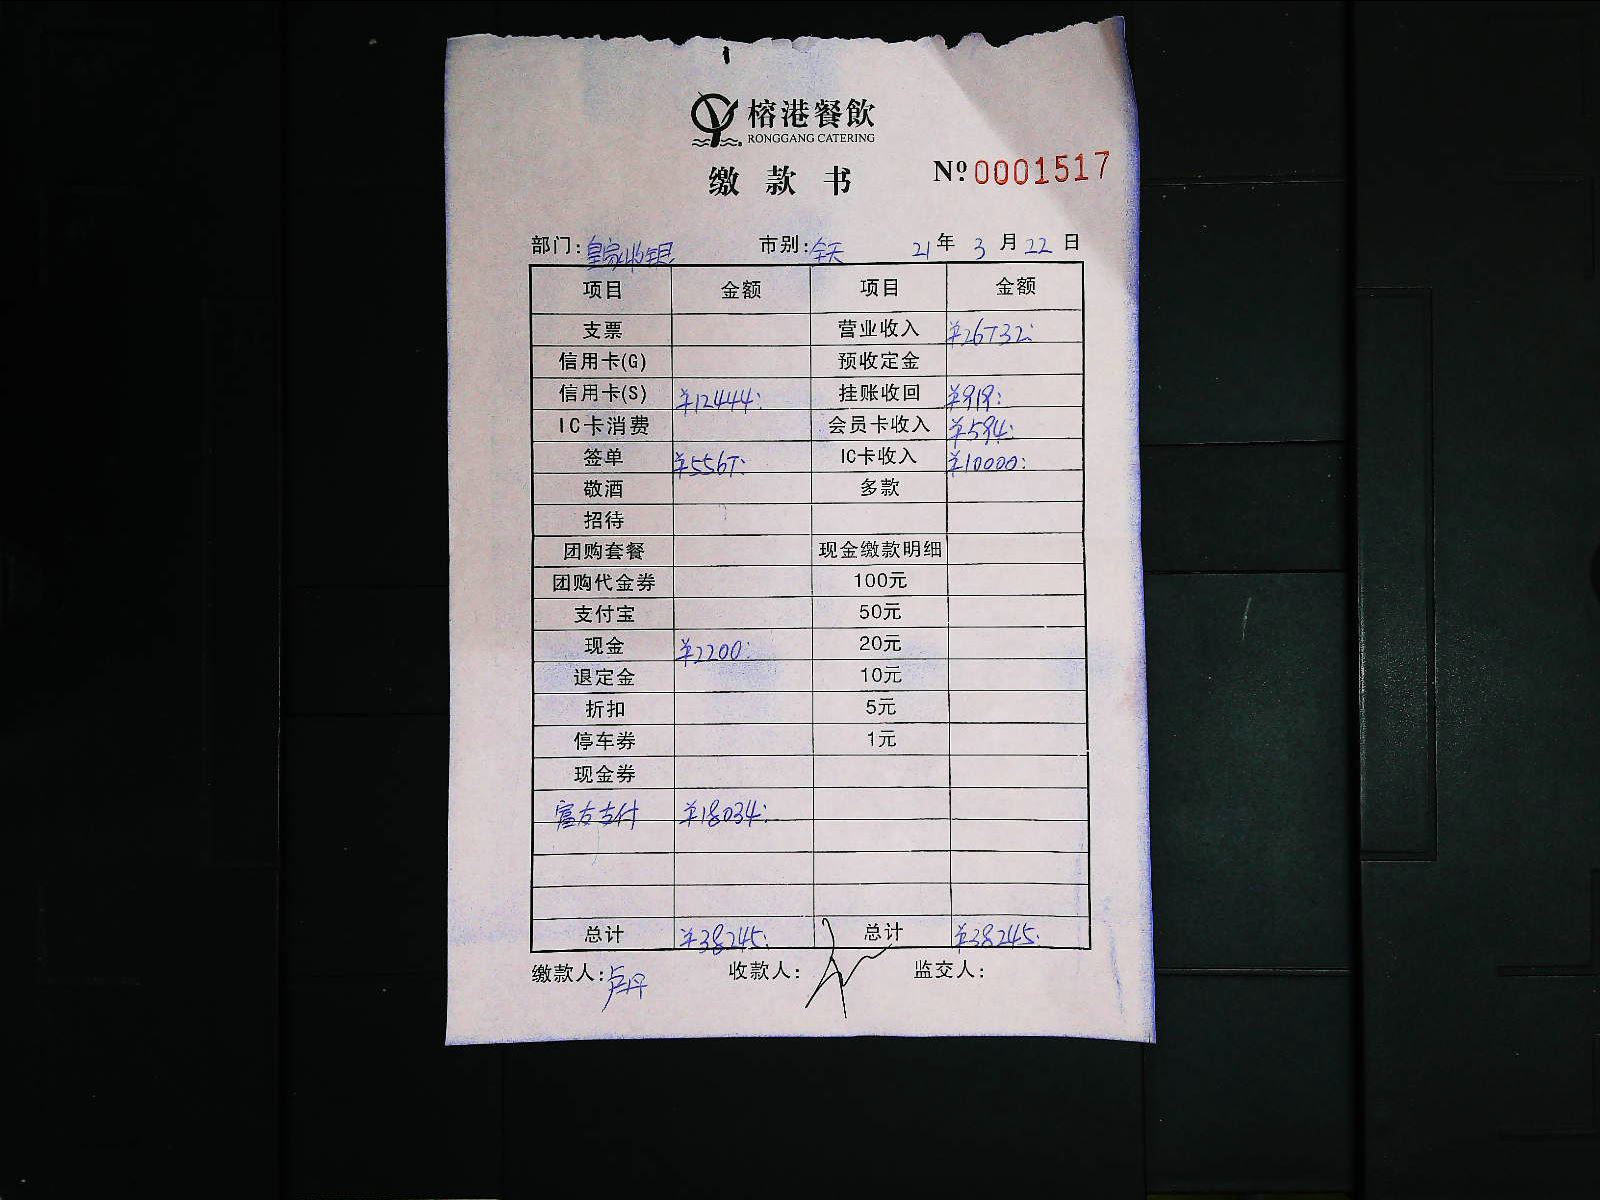 榕港餐飲
RONGGANG CATERING
缴款书 Nº 0001517
部门:皇家收银 市别:全天 21年3月22日
项目 金额 项目 金额
支票 营业收入 ¥26732:
信用卡(G) 预收定金
信用卡(S) ¥12444: 挂账收回 ¥919:
IC卡消费 会员卡收入 ¥594:
签单 ¥5567: IC卡收入 ¥10000:
敬酒 多款
招待
团购套餐 现金缴款明细
团购代金券 100元
支付宝 50元
现金 ¥2200: 20元
退定金 10元
折扣 5元
停车券 1元
现金券
富友支付 ¥18034:
总计 ¥38245: 总计 ¥38245:
缴款人:卢丹 收款人: 监交人: